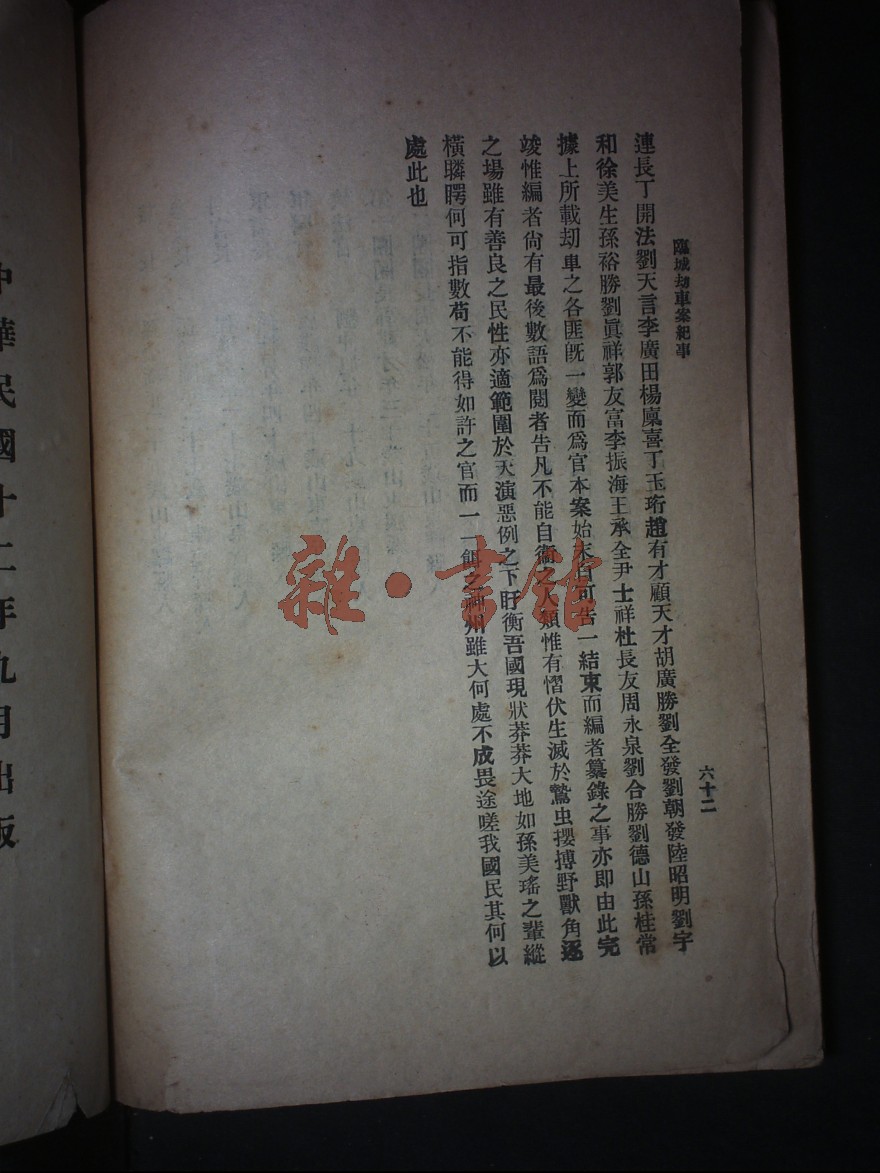 臨城劫車案紀事
六十二
連長丁開法劉天言李廣田楊鳳喜丁玉珩趙有才顧天才胡廣勝劉全發劉朝發陸昭明劉宇
和徐美生孫裕勝劉眞祥郭友富李振海王承全尹士祥杜長友周永泉劉合勝劉德山孫桂常
據上所載刧車之各匪旣一變而爲官本案始末自可告一結束而編者纂錄之事亦即由此完
竣惟編者尙有最後數語爲閱者告凡不能自衞之人類惟有慴伏生滅於鷙虫攖搏野獸角逐
之場雖有善良之民性亦適範圍於天演惡例之下盱衡吾國現狀莽莽大地如孫美瑤之輩縱
橫暽腭何可指數苟不能得如許之官而一一餌之神州雖大何處不成畏途嗟我國民其何以
處此也
中華民國十二年九月出版
雜·書館